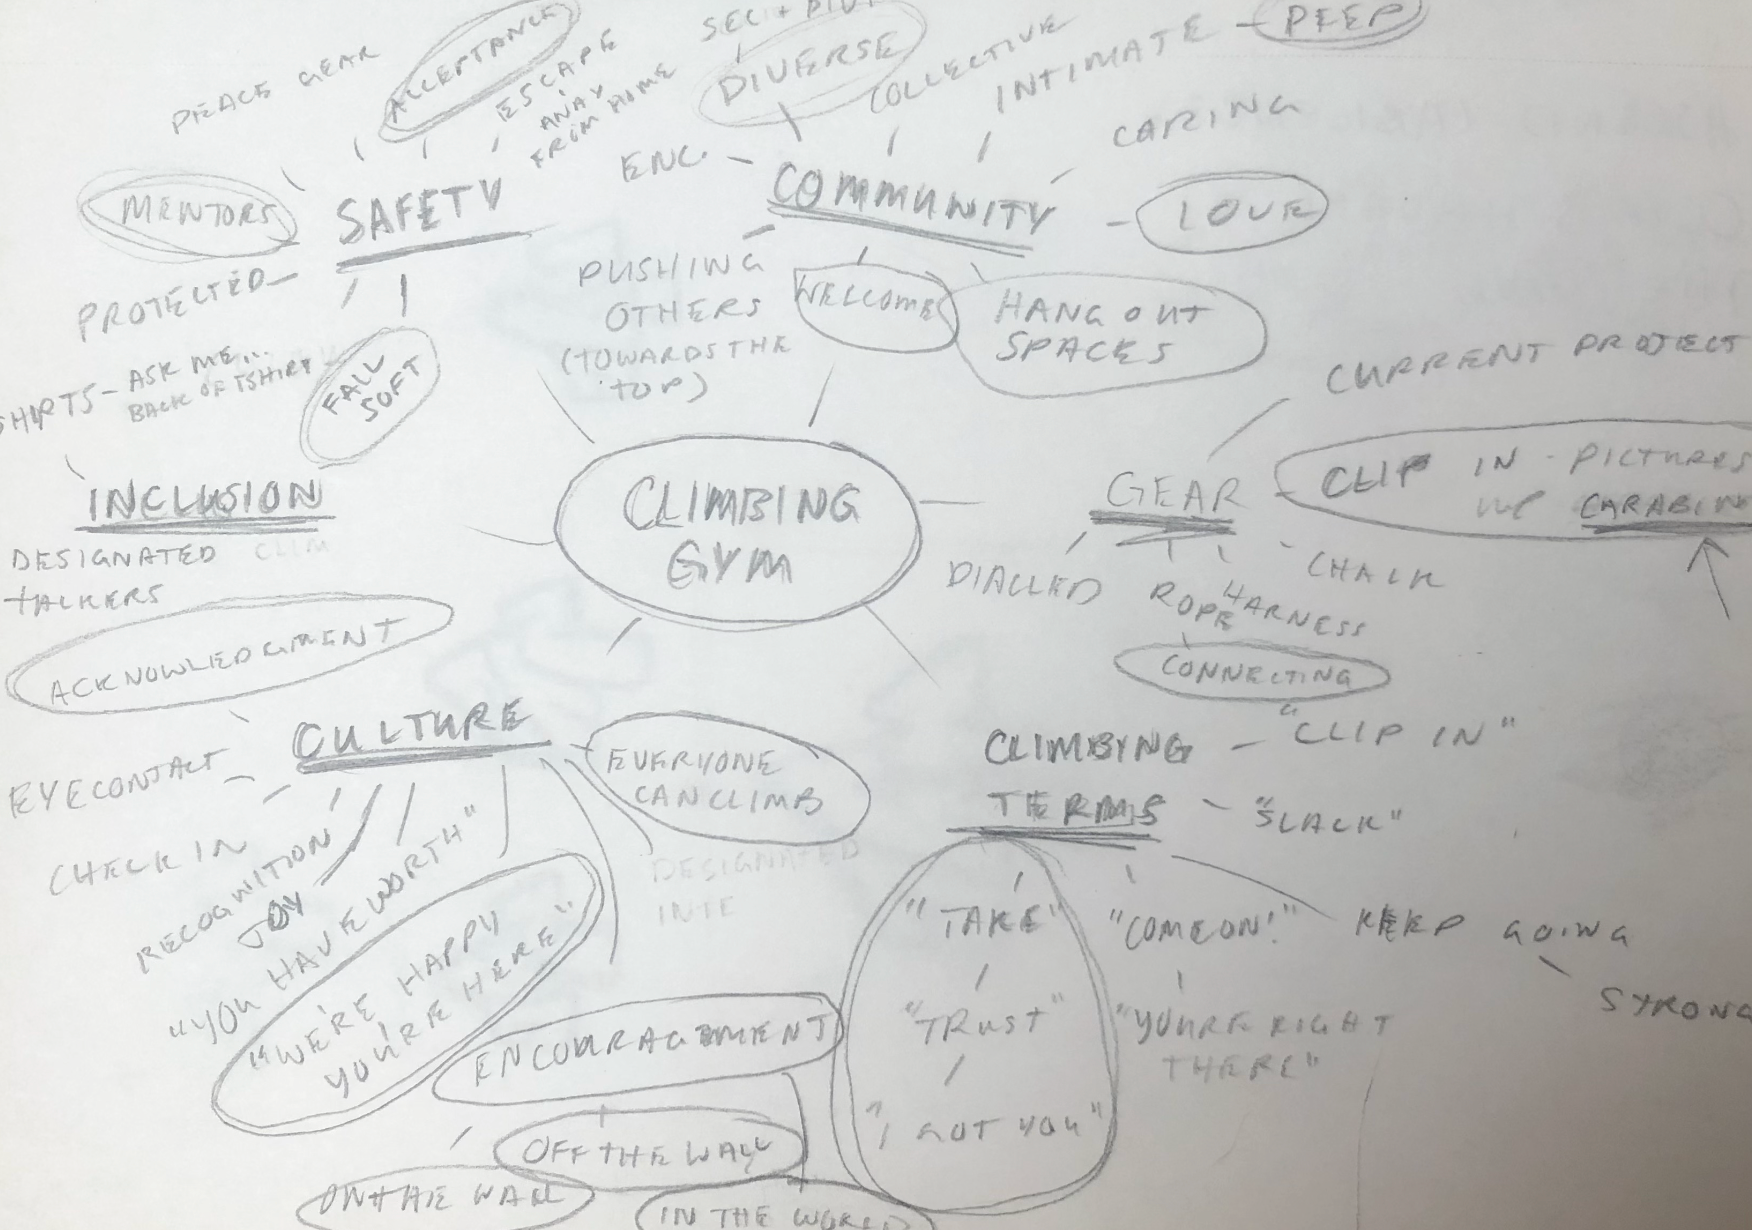 PEACE GEAR
ACCEPTANCE
ESCAPE
AWAY
FROM HOME
DIVERSE
COLLECTIVE
INTIMATE - DEEP
CARING
ENC.
MENTORS
SAFETY
COMMUNITY
LOVE
PROTECTED
PUSHING
OTHERS
(TOWARDS THE
TOP)
WELCOME
HANG OUT
SPACES
SHIRTS - ASK ME...
BACK OF TSHIRT
FALL
SOFT
CURRENT PROJECT
INCLUSION
CLIMBING
GYM
GEAR
CLIP IN - PICTURES
CARABIN
DESIGNATED
TALKERS
CLIM
DIALLED
ROPE
HARNESS
CHALK
ACKNOWLEDGMENT
CONNECTING
CULTURE
EYECONTACT
CHECK IN
RECOGNITION
JOY
"YOU HAVE WORTH"
"WE'RE HAPPY
YOU'RE HERE"
EVERYONE
CAN CLIMB
DESIGNATED
INTE
CLIMBING
TERMS
"CLIP IN"
"SLACK"
"TAKE"
"COME ON!"
KEEP GOING
STRONG
"TRUST"
"YOU'RE RIGHT
THERE"
"I GOT YOU"
ENCOURAGEMENT
OFF THE WALL
ON THE WALL
IN THE WORLD